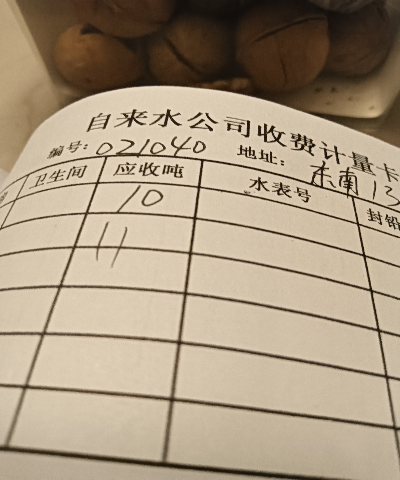 自来水公司收费计量卡
编号: 021040 地址: 东南13
卫生间 应收吨 水表号 封铅
10
11